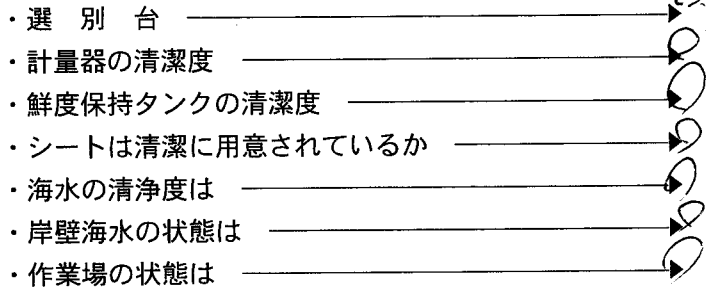 ・選 別 台 ―――▶
・計量器の清潔度 ―――▶ ○
・鮮度保持タンクの清潔度 ―――▶ ○
・シートは清潔に用意されているか ―――▶ ○
・海水の清浄度は ―――▶ ○
・岸壁海水の状態は ―――▶ ○
・作業場の状態は ―――▶ ○